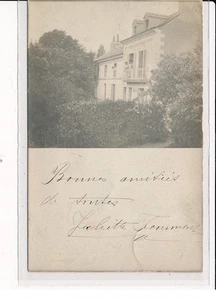 Bonnes amitiés
de toutes
Juliette